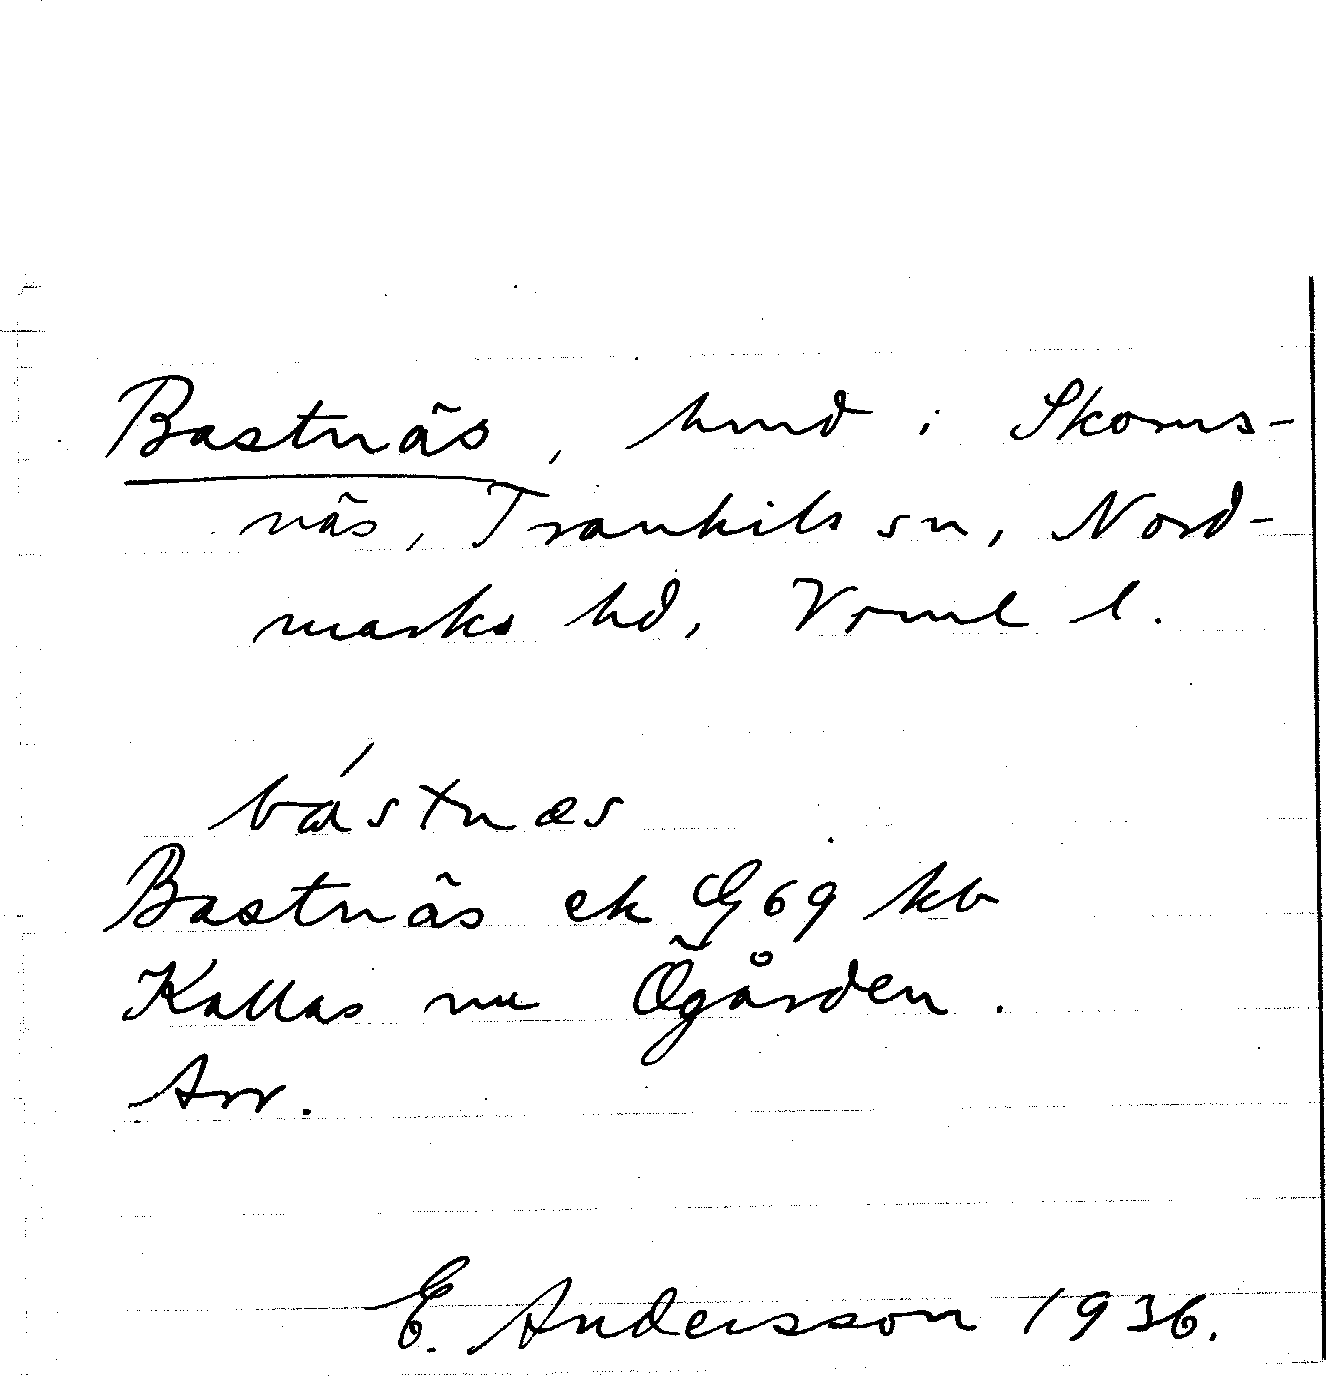 Bastnäs, hmd i Skoms-
näs, Trankils sn, Nord-
marks hd, Vrml l.
bástnæs
Bastnäs ek G69 kb
Kallas nu Ögården.
Arr.
E. Andersson 1936.